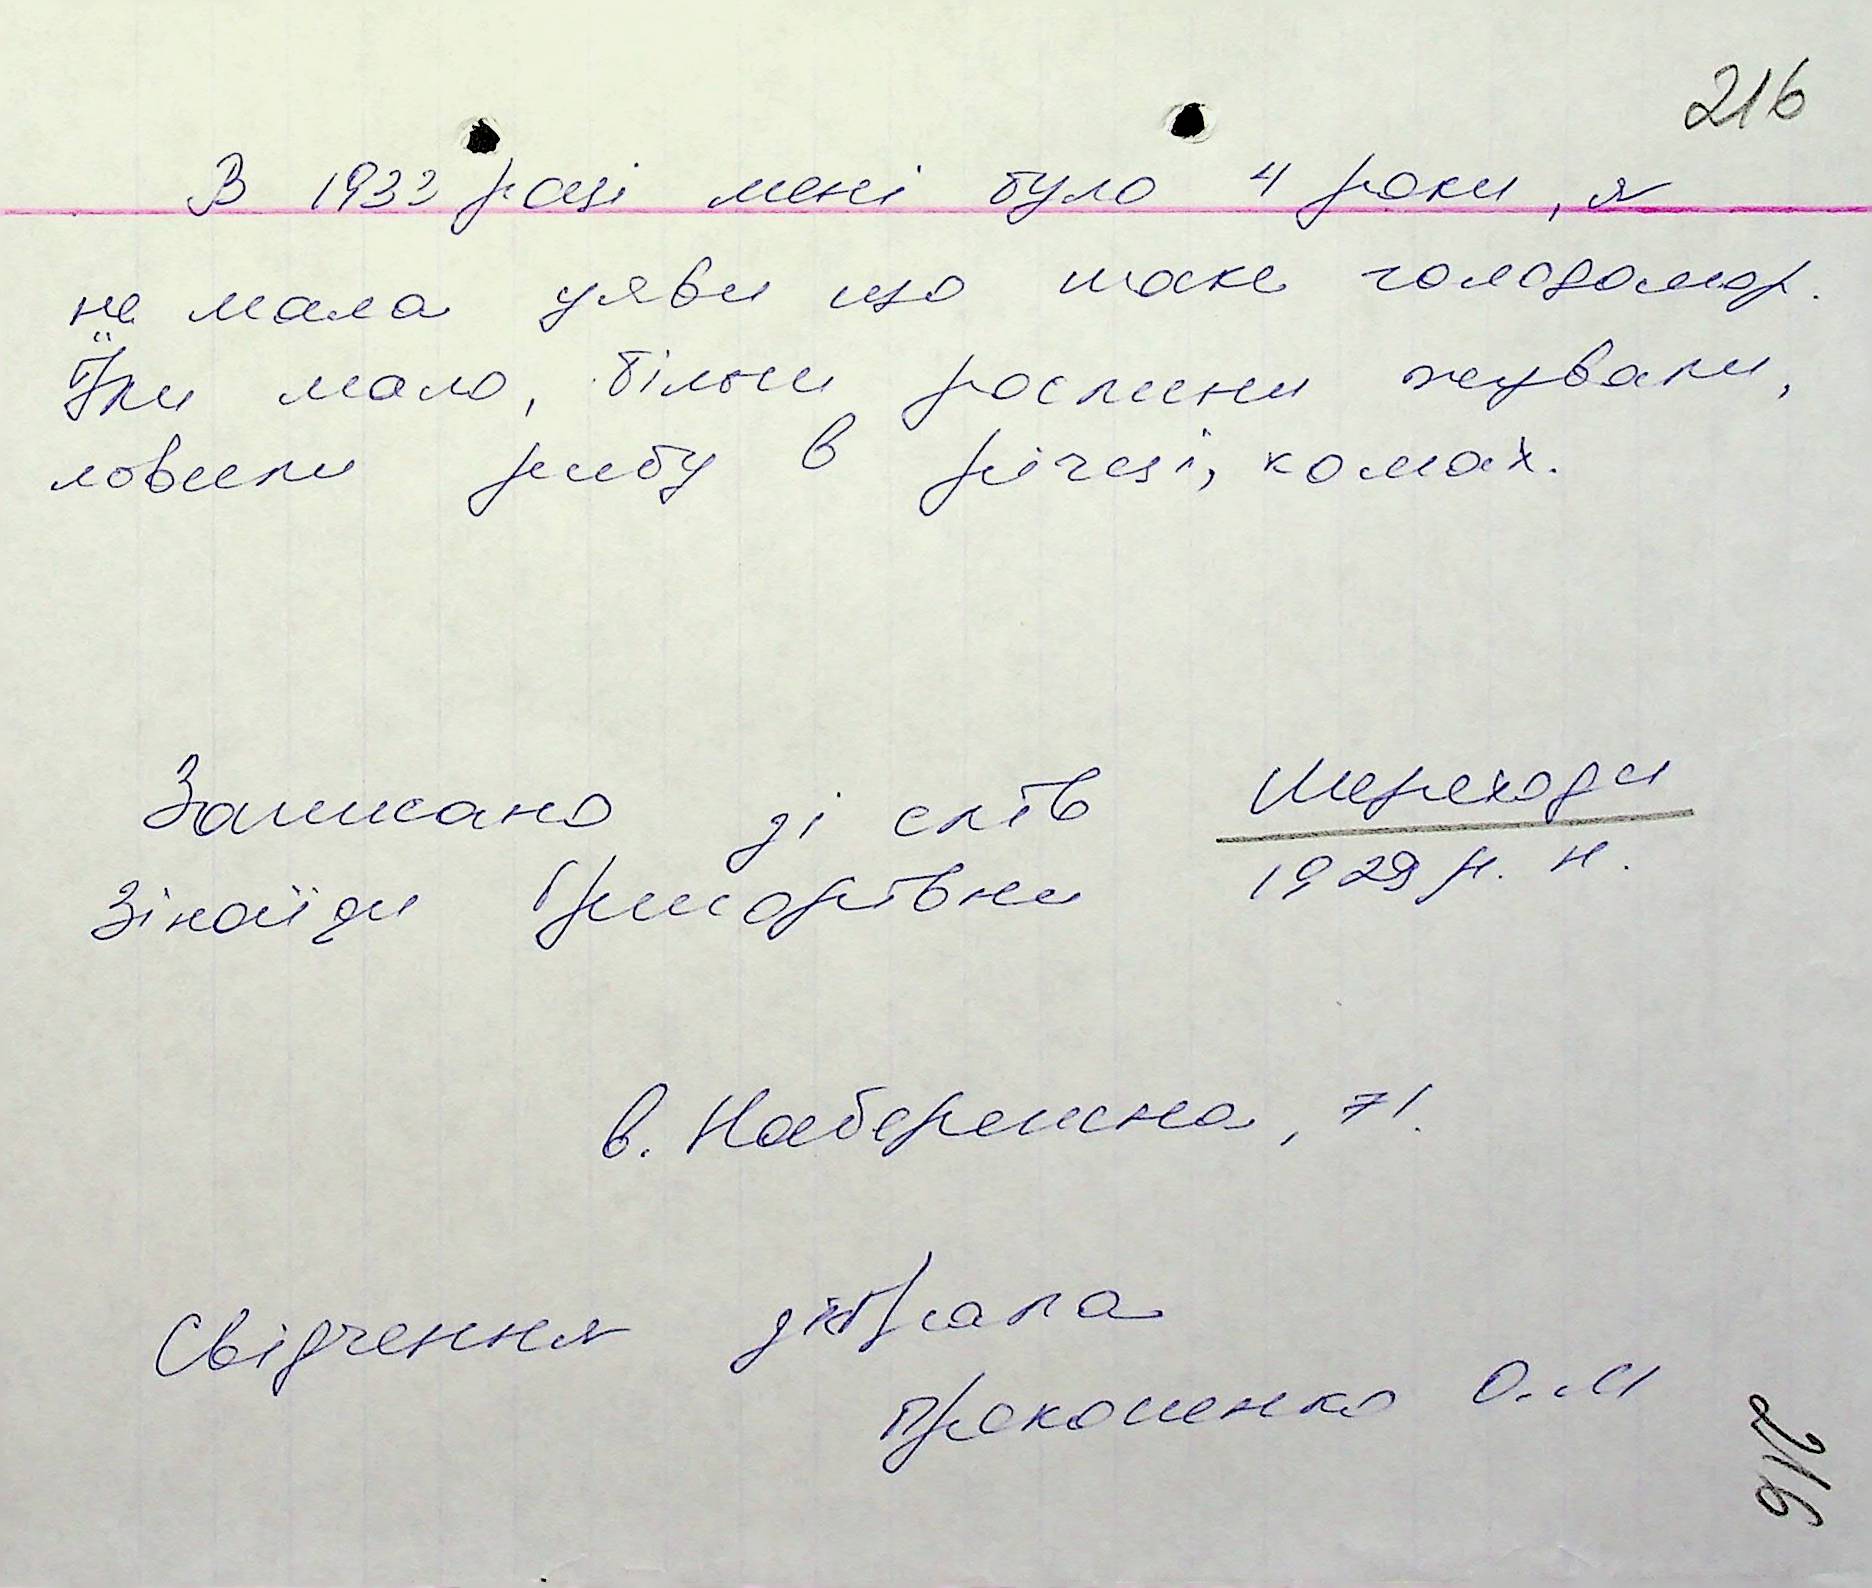 216
В 1933 році мені було 4 роки, я
не мала уяви що таке голодомор.
Їли мало, більш рослини жували,
ловили рибу в річці, комах.
Записано зі слів Шереходи
Зінаїди Григорівни 1929 р. н.
в. Набережна, 71.
Свідчення зібрала
Прокопенко О. М
216